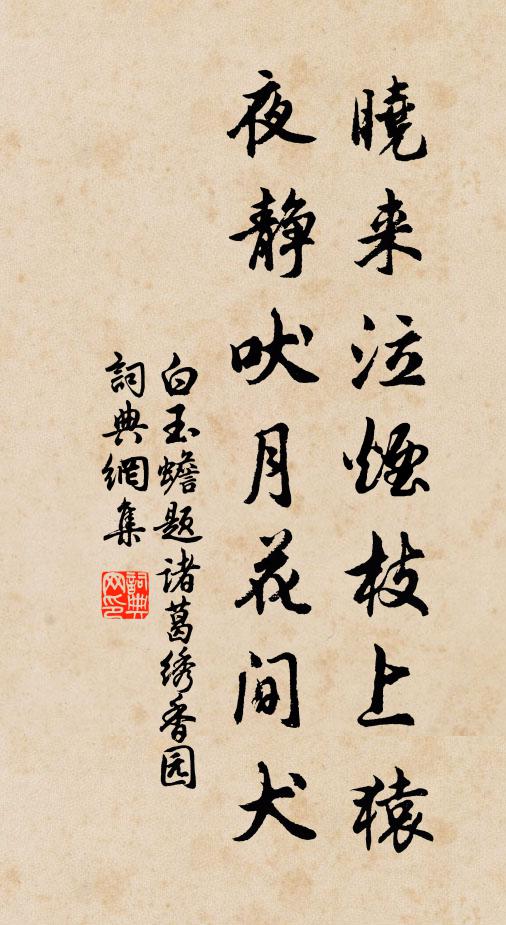 曉来泣煙枝上猿
夜静吠月花间犬
白玉蟾题诸葛绣香园
詞典網集
詞典网印